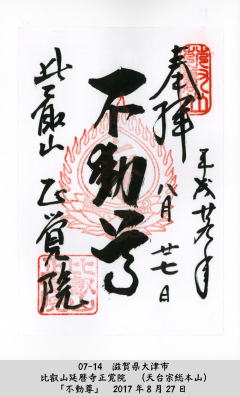 奉拝
平成廿九年
八月廿七日
不動尊
比叡山 正覚院
07-14 滋賀県大津市
比叡山延暦寺正覚院 (天台宗総本山)
「不動尊」 2017年8月27日